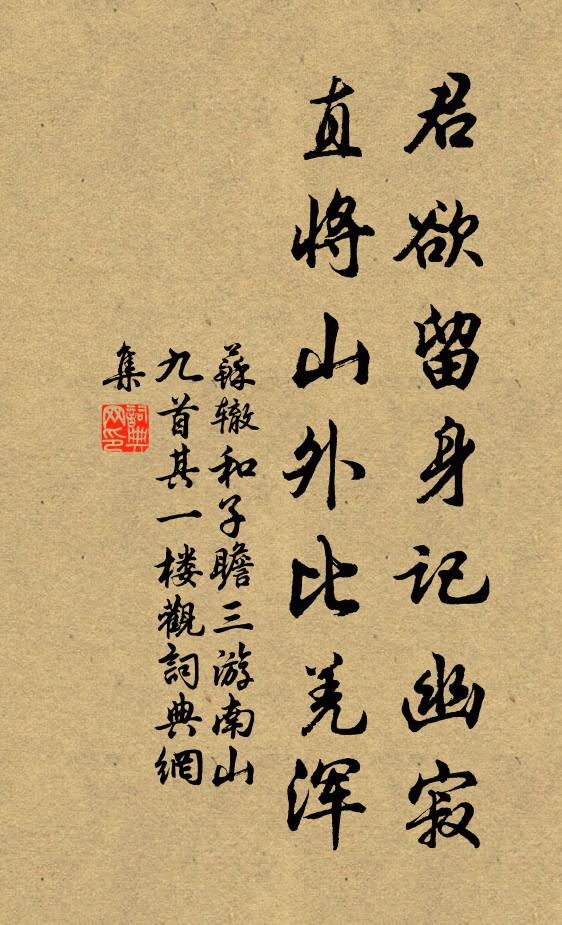 君欲留身记幽寂
直将山外比羌浑
蘇辙和子瞻三游南山
九首其一楼觀詞典網
集
詞典网印